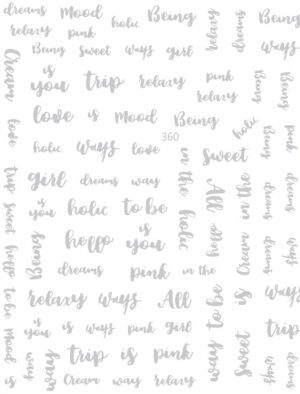 dreams Mood holic Being
relaxy pink
Being sweet ways girl
relaxy
dreams
Being
ways
Cream
is
you trip relaxy pink
relaxy
Being
Being
love is Mood Being
love
holic ways love
360
holic
sweet
Being
pink
trip
girl dreams way
in the
All
in the
dreams
sweet
is
you holic to be
holic
Being
hello
is
you
hello
Cream
dreams
ways
hello
dreams pink in the
dreams
to be
relaxy ways All
to be
is
ways
is
you is ways pink girl
trip
Mood
way
way
trip is pink
way
sweet
way
is
Cream way relaxy
dreams